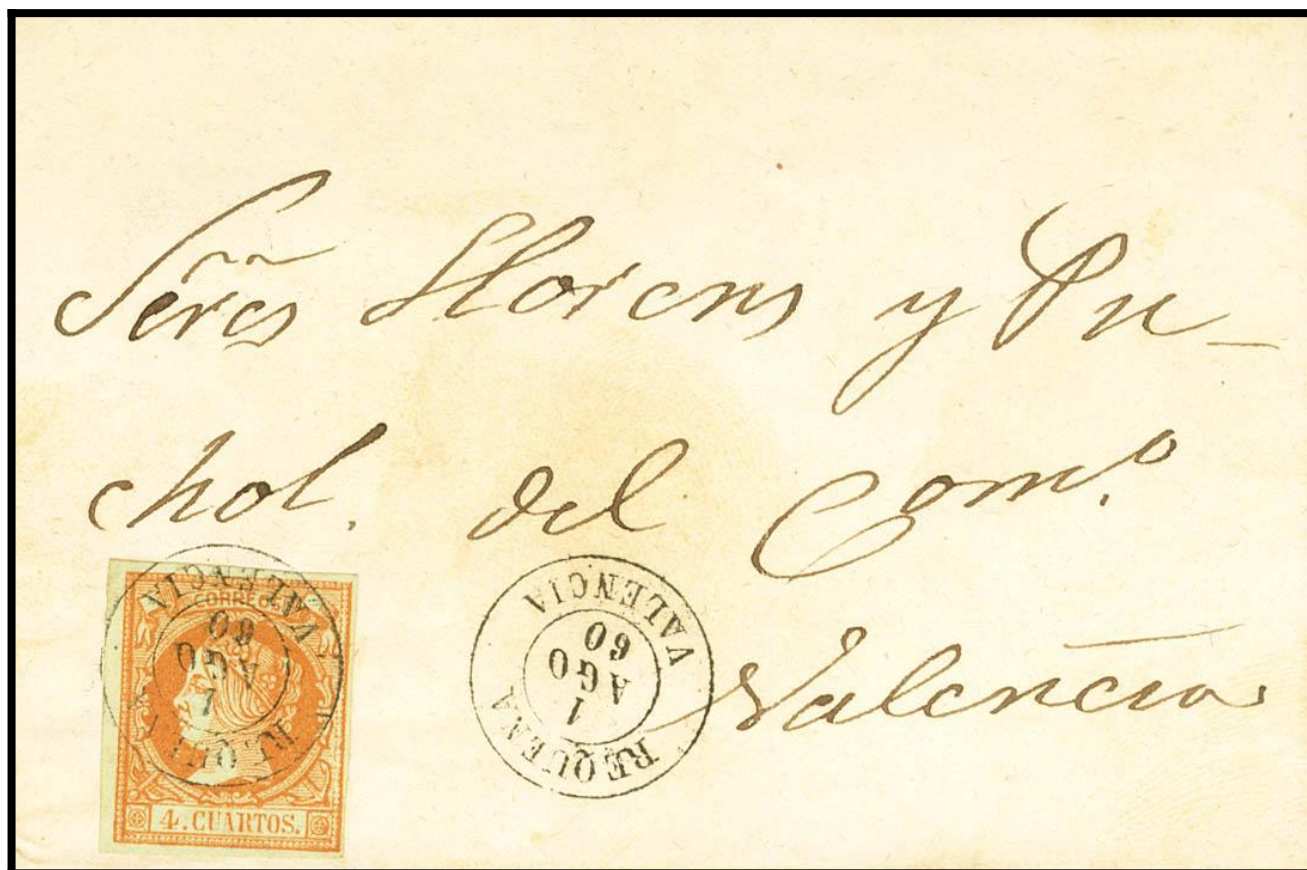 Señres Llorens y Pu-
chol. del Com.o
Valencia
CORREOS
4. CUARTOS.
REQUENA
1
AGO
60
VALENCIA
REQUENA
1
AGO
60
VALENCIA